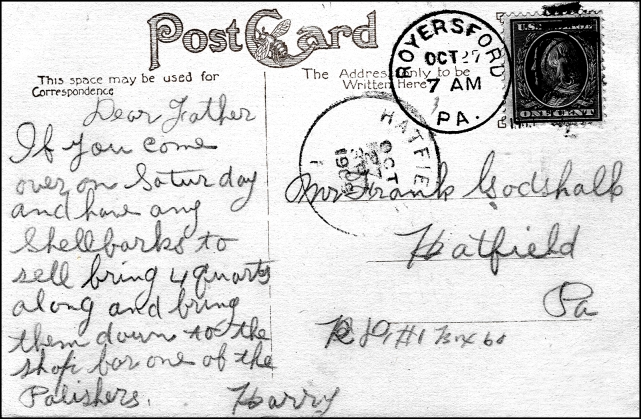 Post Card
This space may be used for
Correspondence
The Address Only to be
Written Here
ROYERSFORD
OCT 27
7 AM
PA.
U.S. POSTAGE
ONE CENT
HATFIE
OCT
27
1909
Dear Father
If you come
over on Saturday
and have any
Shellbarks to
sell bring 4 quarts
along and bring
them down to the
shop for one of the
Polishers.
Harry
Mr Frank Godshalk
Hatfield
Pa
R D #1 Box 60